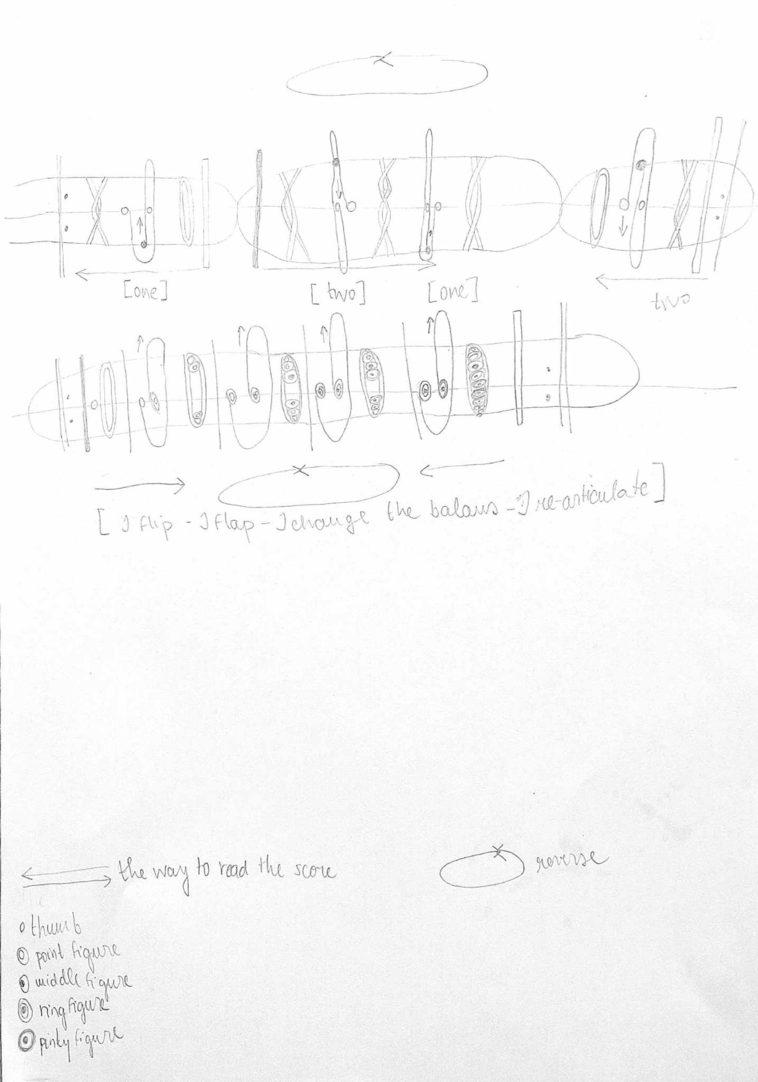 [one]
[two]
[one]
two
[I flip - I flap - I change the balans - I re-articulate]
the way to read the score
reverse
thumb
point figure
middle figure
ring figure
pinky figure